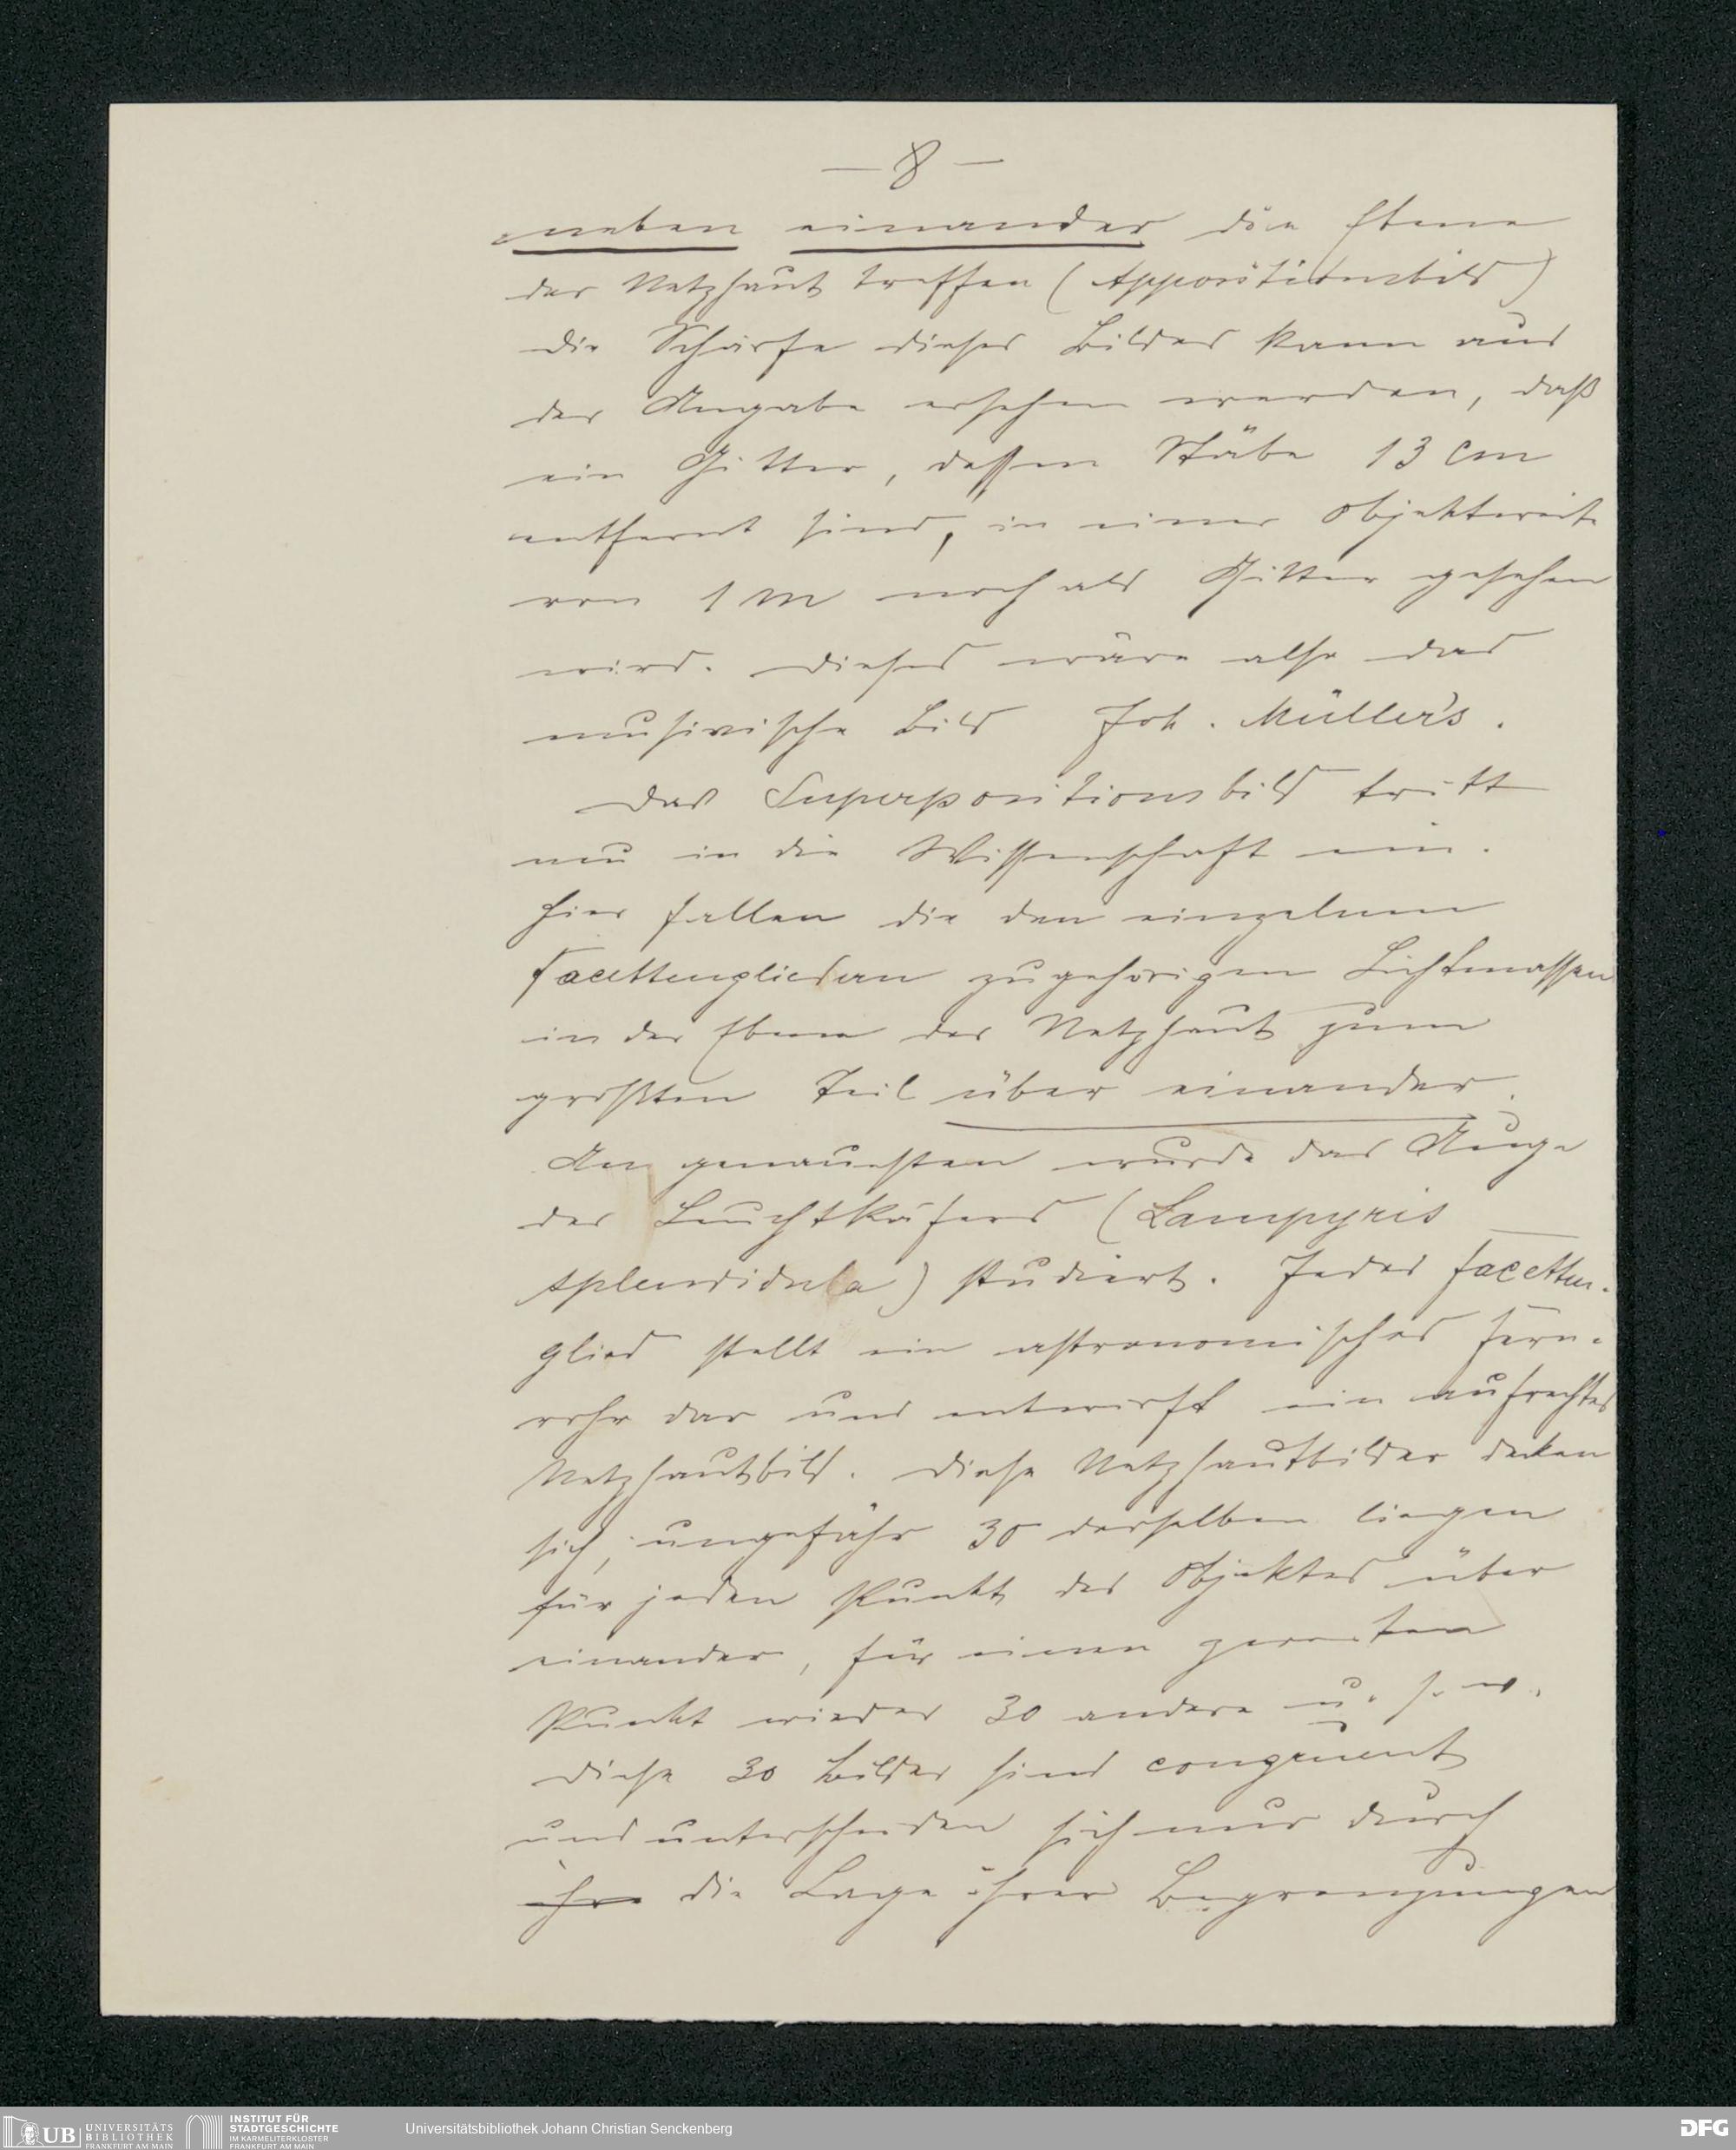 — 8 —
neben einander die Ebene
der Netzhaut treffen (Appositionsbild)
die Schärfe dieses Bildes kann aus
der Angabe ersehen werden, daß
ein Gitter, dessen Stäbe 13 cm
entfernt sind, in einer Objektweite
von 1 m noch als Gitter gesehen
wird. Dieses wäre also das
musivische Bild Joh. Müller's.
Das Superpositionsbild tritt
neu in die Wissenschaft ein.
Hier fallen die den einzelnen
Facettengliedern zugehörigen Lichtmassen
in der Ebene der Netzhaut zum
größten Teil über einander.
Am genauesten wurde das Auge
des Leuchtkäfers (Lampyris
splendidula) studiert. Jedes Facetten-
glied stellt ein astronomisches Fern-
rohr dar und entwirft ein aufrechtes
Netzhautbild. Diese Netzhautbilder decken
sich, ungefähr 30 derselben liegen
für jeden Punkt des Objektes über
einander, für einen zweiten
Punkt wieder 30 andere u. s. w.
Diese 30 Bilder sind congruent
und unterscheiden sich nur durch
ihre die Lage ihrer Begrenzungen
UB UNIVERSITÄTS
BIBLIOTHEK
FRANKFURT AM MAIN
INSTITUT FÜR
STADTGESCHICHTE
IM KARMELITERKLOSTER
FRANKFURT AM MAIN
Universitätsbibliothek Johann Christian Senckenberg
DFG